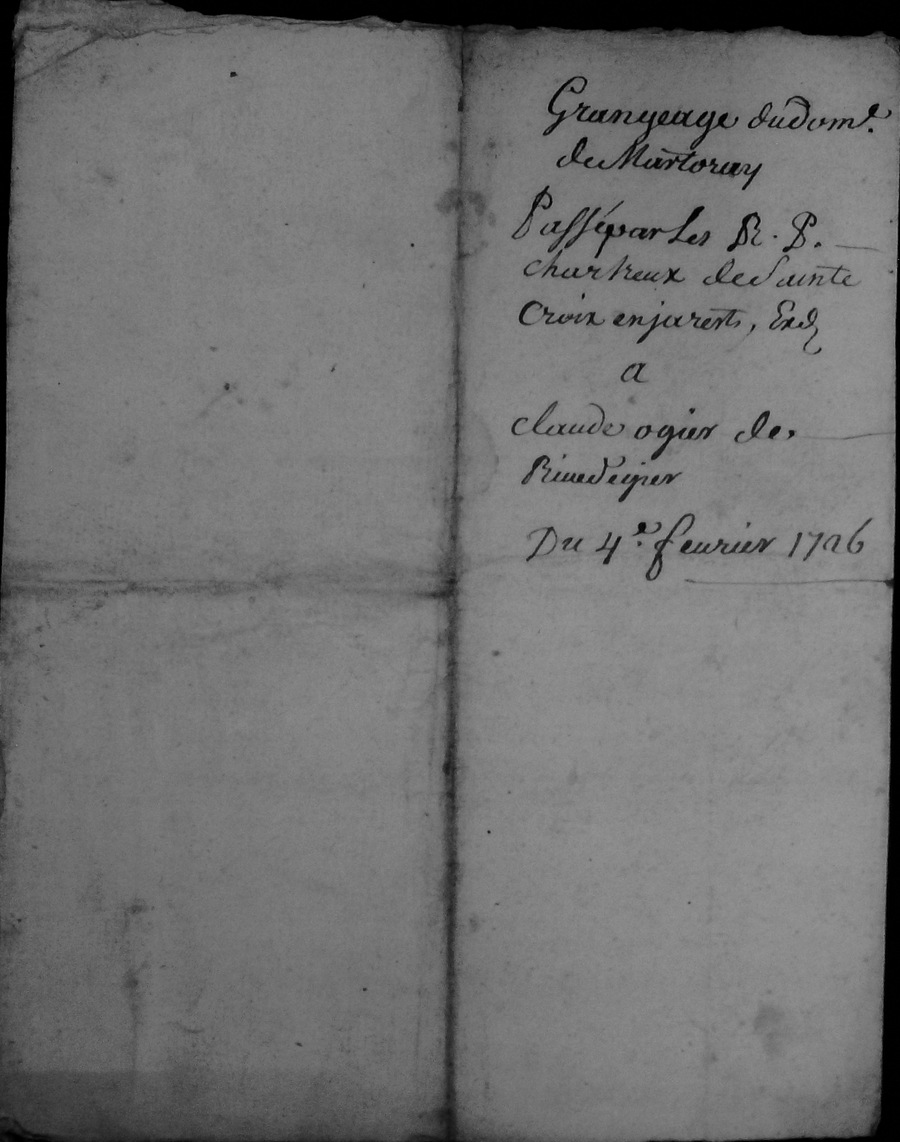 Grangeage du dom.e
de Martoray
Passé par Les R. P.
chartreux de Sainte
Croix en jarest,
a
claude ogier de
Rivedegier
Du 4.e fevrier 1726